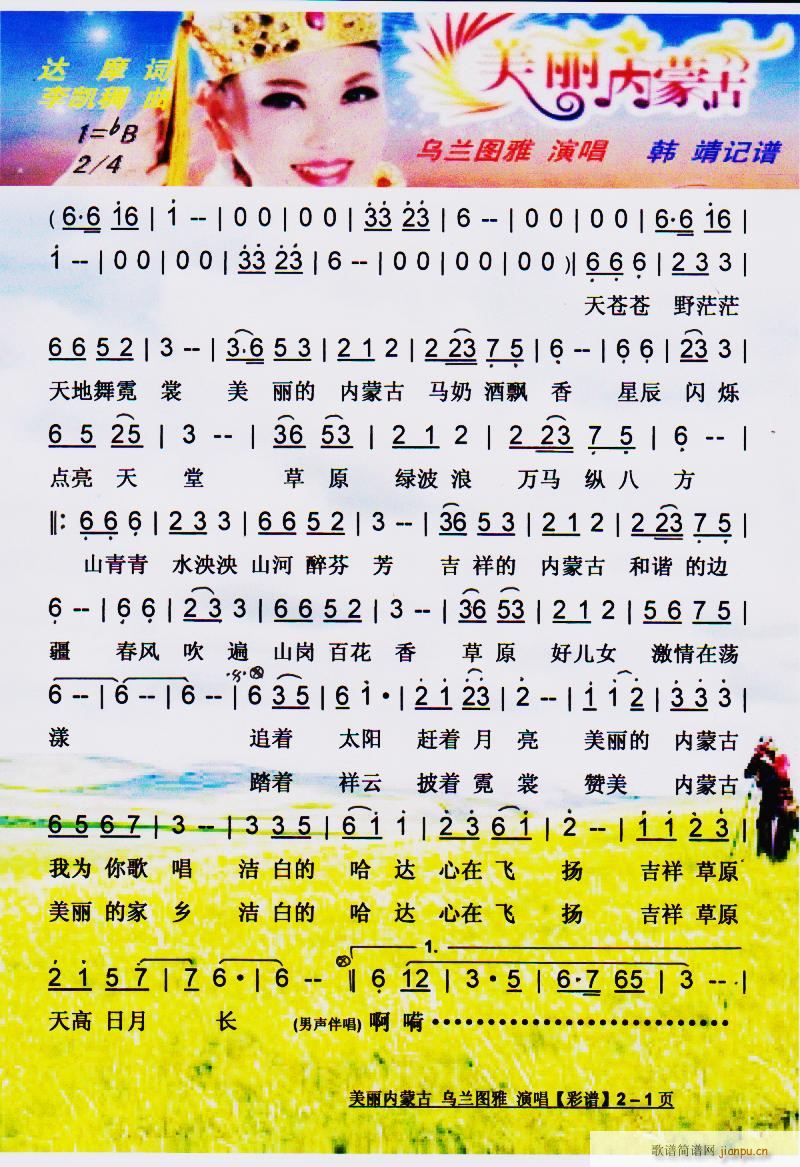 达 摩 词
李凯稠 曲
1=♭B
2/4
美丽内蒙古
乌兰图雅 演唱 韩 靖记谱
(6·6 16 | 1 -- | 0 0 | 0 0 | 33 23 | 6 -- | 0 0 | 0 0 | 6·6 16 |
1 -- | 0 0 | 0 0 | 33 23 | 6 -- | 0 0 | 0 0 | 0 0 )| 6 6 6 | 2 3 3 |
天苍苍 野茫茫
6 6 5 2 | 3 -- | 3·6 5 3 | 2 1 2 | 2 23 7 5 | 6 -- | 6 6 | 23 3 |
天地舞霓 裳 美 丽的 内蒙古 马奶 酒飘 香 星辰 闪 烁
6 5 25 | 3 -- | 36 53 | 2 1 2 | 2 23 7 5 | 6 -- |
点亮 天 堂 草 原 绿波 浪 万马 纵 八 方
‖: 6 6 6 | 2 3 3 | 6 6 5 2 | 3 -- | 36 5 3 | 2 1 2 | 2 23 7 5 |
山青青 水泱泱 山河 醉芬 芳 吉 祥的 内蒙古 和谐 的边
6 -- | 6 6 | 23 3 | 6 6 5 2 | 3 -- | 36 53 | 2 1 2 | 5 6 7 5 |
疆 春风 吹 遍 山岗 百花 香 草 原 好儿女 激情在荡
6 -- | 6 -- | 6 -- | 6 35 | 6 1· | 2 1 23 | 2 -- | 1 1 2 | 3 3 3 |
漾 追着 太阳 赶着 月 亮 美丽的 内蒙古
踏着 祥云 披着 霓 裳 赞美 内蒙古
6 5 6 7 | 3 -- | 3 3 5 | 6 1 1 | 2 3 6 1 | 2 -- | 1 1 2 3 |
我为 你歌 唱 洁 白的 哈 达 心在 飞 扬 吉祥 草原
美丽 的家 乡 洁 白的 哈 达 心在 飞 扬 吉祥 草原
1.
2 1 5 7 | 7 6· | 6 -- ‖ 6 12 | 3· 5 | 6·7 65 | 3 -- |
天高 日月 长 (男声伴唱) 啊 嗬••••••••••••••••••••••
美丽内蒙古 乌兰图雅 演唱【彩谱】2-1页
歌谱简谱网 jianpu.cn